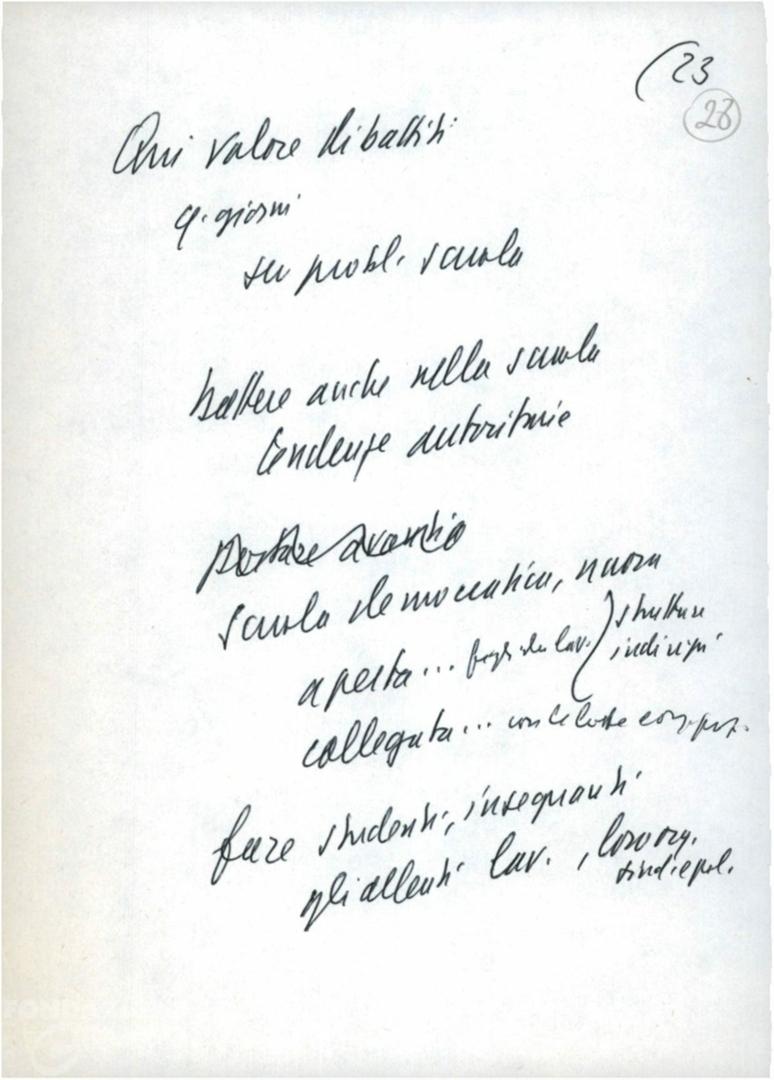 (23
26
Qui valore dibattiti
q. giorni
su probl. scuola
battere anche nella scuola
tendenze autoritarie
portare avanti
scuola democratica, nuova
aperta... figli dei lav. ) strutture
indirizzi
collegata... con le lotte
fare studenti, insegnanti
gli alleati lav., loro org.
sind. e pol.
FOND